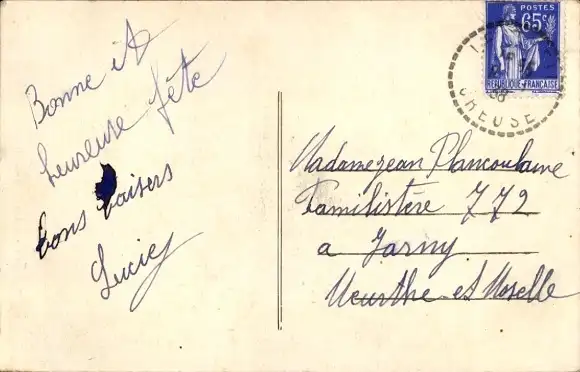 Bonne et
heureuse fête
bons baisers
Lucie
POSTES
65c
REPUBLIQUE FRANÇAISE
38
CREUSE
Madame Jean Plancoulaine
Familistère 772
a Jarny
Meurthe et Moselle